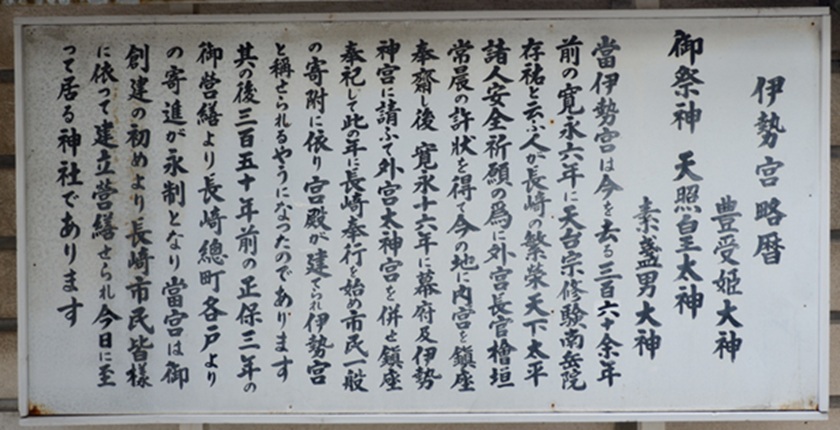 伊勢宮略暦
豊受姫大神
御祭神 天照皇太神
素盞男大神
當伊勢宮は今を去る三百六十余年
前の寛永六年に天台宗修験南岳院
存祐と云ふ人が長崎の繁榮天下太平
諸人安全祈願の爲に外宮長官檜垣
常晨の許状を得て今の地に内宮を鎮座
奉齋し後 寛永十六年に幕府及伊勢
神宮に請ふて外宮太神宮を併せ鎮座
奉祀して此の年に長崎奉行を始め市民一般
の寄附に依り宮殿が建てられ伊勢宮
と稱せられるやうになつたのであります
其の後三百五十年前の正保三年の
御営繕より長崎總町各戸より
の寄進が永制となり當宮は御
創建の初めより長崎市民皆様
に依って建立営繕せられ今日に至
って居る神社であります